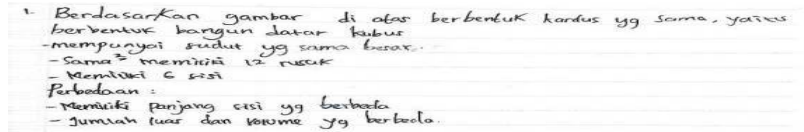 1. Berdasarkan gambar di atas berbentuk kardus yg sama, yaitu
berbentuk bangun datar kubus
- mempunyai sudut yg sama besar.
- Sama² memiliki 12 rusuk
- Memiliki 6 sisi
Perbedaan :
- Memiliki panjang sisi yg berbeda
- Jumlah luas dan volume yg berbeda.